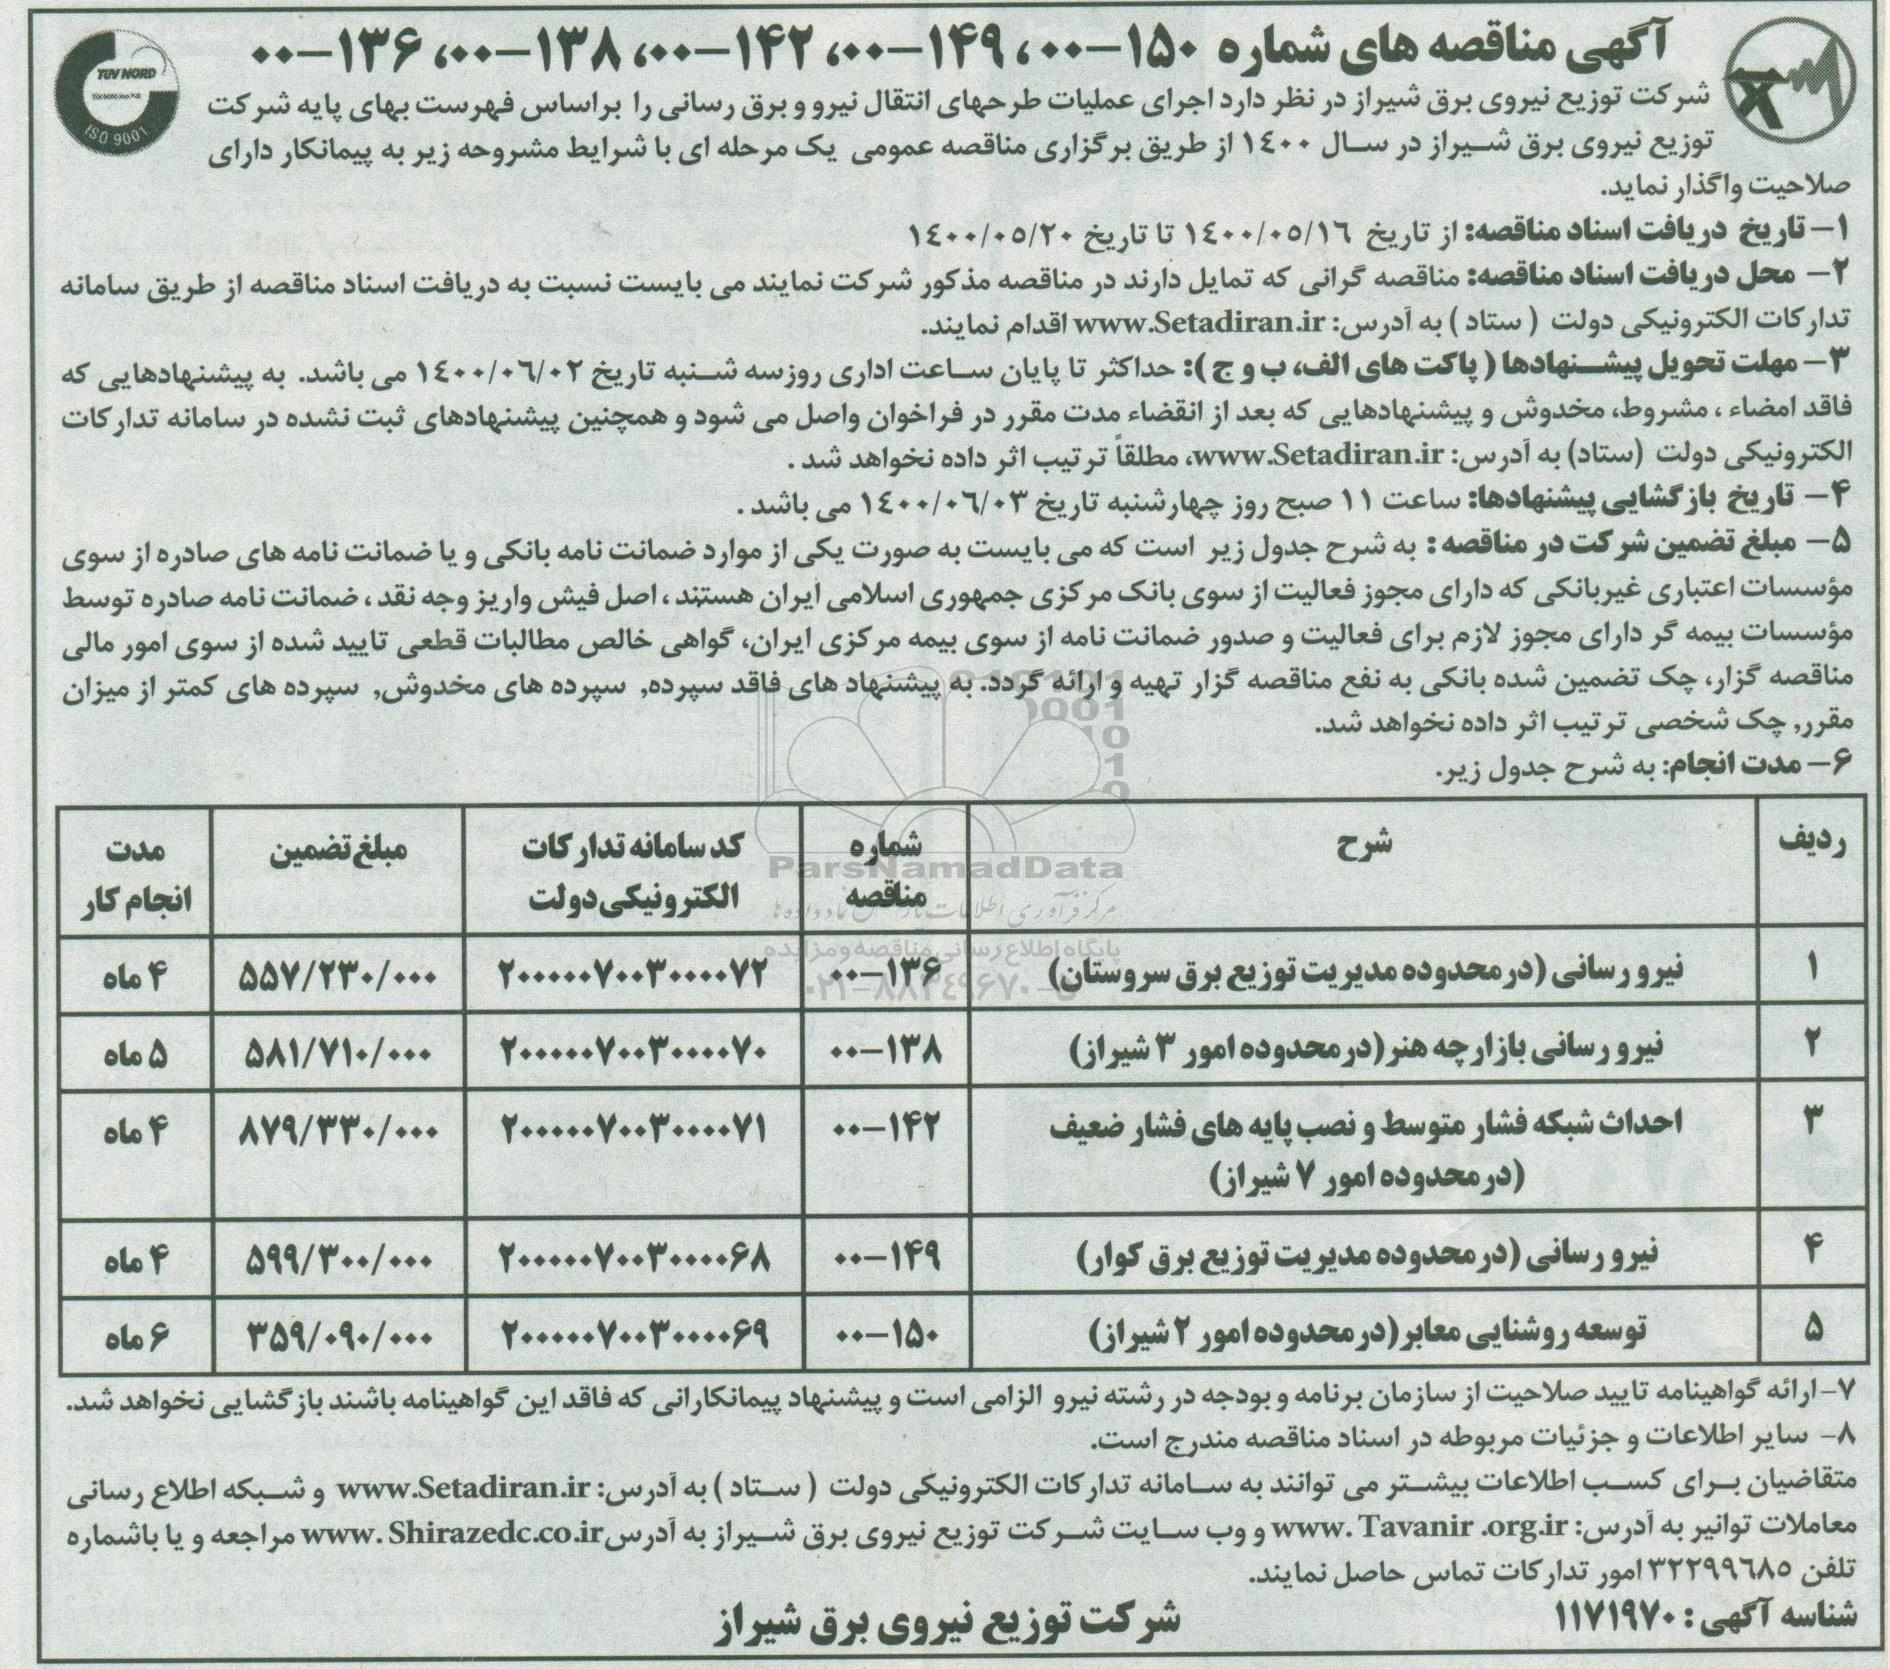 آگهی مناقصه های شماره ۱۵۰-۰۰، ۱۴۹-۰۰، ۱۴۲-۰۰، ۱۳۸-۰۰، ۱۳۶-۰۰
TUV NORD
ISO 9001
شرکت توزیع نیروی برق شیراز در نظر دارد اجرای عملیات طرحهای انتقال نیرو و برق رسانی را براساس فهرست بهای پایه شرکت
توزیع نیروی برق شیراز در سال ۱۴۰۰ از طریق برگزاری مناقصه عمومی یک مرحله ای با شرایط مشروحه زیر به پیمانکار دارای
صلاحیت واگذار نماید.
۱- تاریخ دریافت اسناد مناقصه: از تاریخ ۱۴۰۰/۰۵/۱۶ تا تاریخ ۱۴۰۰/۰۵/۲۰
۲- محل دریافت اسناد مناقصه: مناقصه گرانی که تمایل دارند در مناقصه مذکور شرکت نمایند می بایست نسبت به دریافت اسناد مناقصه از طریق سامانه
تدارکات الکترونیکی دولت ( ستاد ) به آدرس: www.Setadiran.ir اقدام نمایند.
۳- مهلت تحویل پیشنهادها ( پاکت های الف، ب و ج ): حداکثر تا پایان ساعت اداری روزسه شنبه تاریخ ۱۴۰۰/۰۶/۰۲ می باشد. به پیشنهادهایی که
فاقد امضاء ، مشروط، مخدوش و پیشنهادهایی که بعد از انقضاء مدت مقرر در فراخوان واصل می شود و همچنین پیشنهادهای ثبت نشده در سامانه تدارکات
الکترونیکی دولت (ستاد) به آدرس: www.Setadiran.ir، مطلقاً ترتیب اثر داده نخواهد شد .
۴- تاریخ بازگشایی پیشنهادها: ساعت ۱۱ صبح روز چهارشنبه تاریخ ۱۴۰۰/۰۶/۰۳ می باشد .
۵- مبلغ تضمین شرکت در مناقصه : به شرح جدول زیر است که می بایست به صورت یکی از موارد ضمانت نامه بانکی و یا ضمانت نامه های صادره از سوی
مؤسسات اعتباری غیربانکی که دارای مجوز فعالیت از سوی بانک مرکزی جمهوری اسلامی ایران هستند ، اصل فیش واریز وجه نقد ، ضمانت نامه صادره توسط
مؤسسات بیمه گر دارای مجوز لازم برای فعالیت و صدور ضمانت نامه از سوی بیمه مرکزی ایران، گواهی خالص مطالبات قطعی تایید شده از سوی امور مالی
مناقصه گزار، چک تضمین شده بانکی به نفع مناقصه گزار تهیه و ارائه گردد. به پیشنهاد های فاقد سپرده, سپرده های مخدوش, سپرده های کمتر از میزان
مقرر, چک شخصی ترتیب اثر داده نخواهد شد.
۶- مدت انجام: به شرح جدول زیر.
ردیف شرح شماره مناقصه کد سامانه تدارکات الکترونیکی دولت مبلغ تضمین مدت انجام کار
۱ نیرو رسانی (در محدوده مدیریت توزیع برق سروستان) ۱۳۶-۰۰ ۲۰۰۰۰۰۷۰۰۳۰۰۰۰۷۲ ۵۵۷/۲۳۰/۰۰۰ ۴ ماه
۲ نیرو رسانی بازارچه هنر (در محدوده امور ۳ شیراز) ۱۳۸-۰۰ ۲۰۰۰۰۰۷۰۰۳۰۰۰۰۷۰ ۵۸۱/۷۱۰/۰۰۰ ۵ ماه
۳ احداث شبکه فشار متوسط و نصب پایه های فشار ضعیف ۱۴۲-۰۰ ۲۰۰۰۰۰۷۰۰۳۰۰۰۰۷۱ ۸۷۹/۳۳۰/۰۰۰ ۴ ماه
(در محدوده امور ۷ شیراز)
۴ نیرو رسانی (در محدوده مدیریت توزیع برق کوار) ۱۴۹-۰۰ ۲۰۰۰۰۰۷۰۰۳۰۰۰۰۶۸ ۵۹۹/۳۰۰/۰۰۰ ۴ ماه
۵ توسعه روشنایی معابر (در محدوده امور ۲ شیراز) ۱۵۰-۰۰ ۲۰۰۰۰۰۷۰۰۳۰۰۰۰۶۹ ۳۵۹/۰۹۰/۰۰۰ ۶ ماه
ParsNamadData
پایگاه اطلاع رسانی مناقصه و مزایده
۷- ارائه گواهینامه تایید صلاحیت از سازمان برنامه و بودجه در رشته نیرو الزامی است و پیشنهاد پیمانکارانی که فاقد این گواهینامه باشند بازگشایی نخواهد شد.
۸- سایر اطلاعات و جزئیات مربوطه در اسناد مناقصه مندرج است.
متقاضیان برای کسب اطلاعات بیشتر می توانند به سامانه تدارکات الکترونیکی دولت ( ستاد ) به آدرس: www.Setadiran.ir و شبکه اطلاع رسانی
معاملات توانیر به آدرس: www. Tavanir .org.ir و وب سایت شرکت توزیع نیروی برق شیراز به آدرس www. Shirazedc.co.ir مراجعه و یا باشماره
تلفن ۳۲۲۹۹۶۸۵ امور تدارکات تماس حاصل نمایند.
شناسه آگهی : ۱۱۷۱۹۷۰
شرکت توزیع نیروی برق شیراز